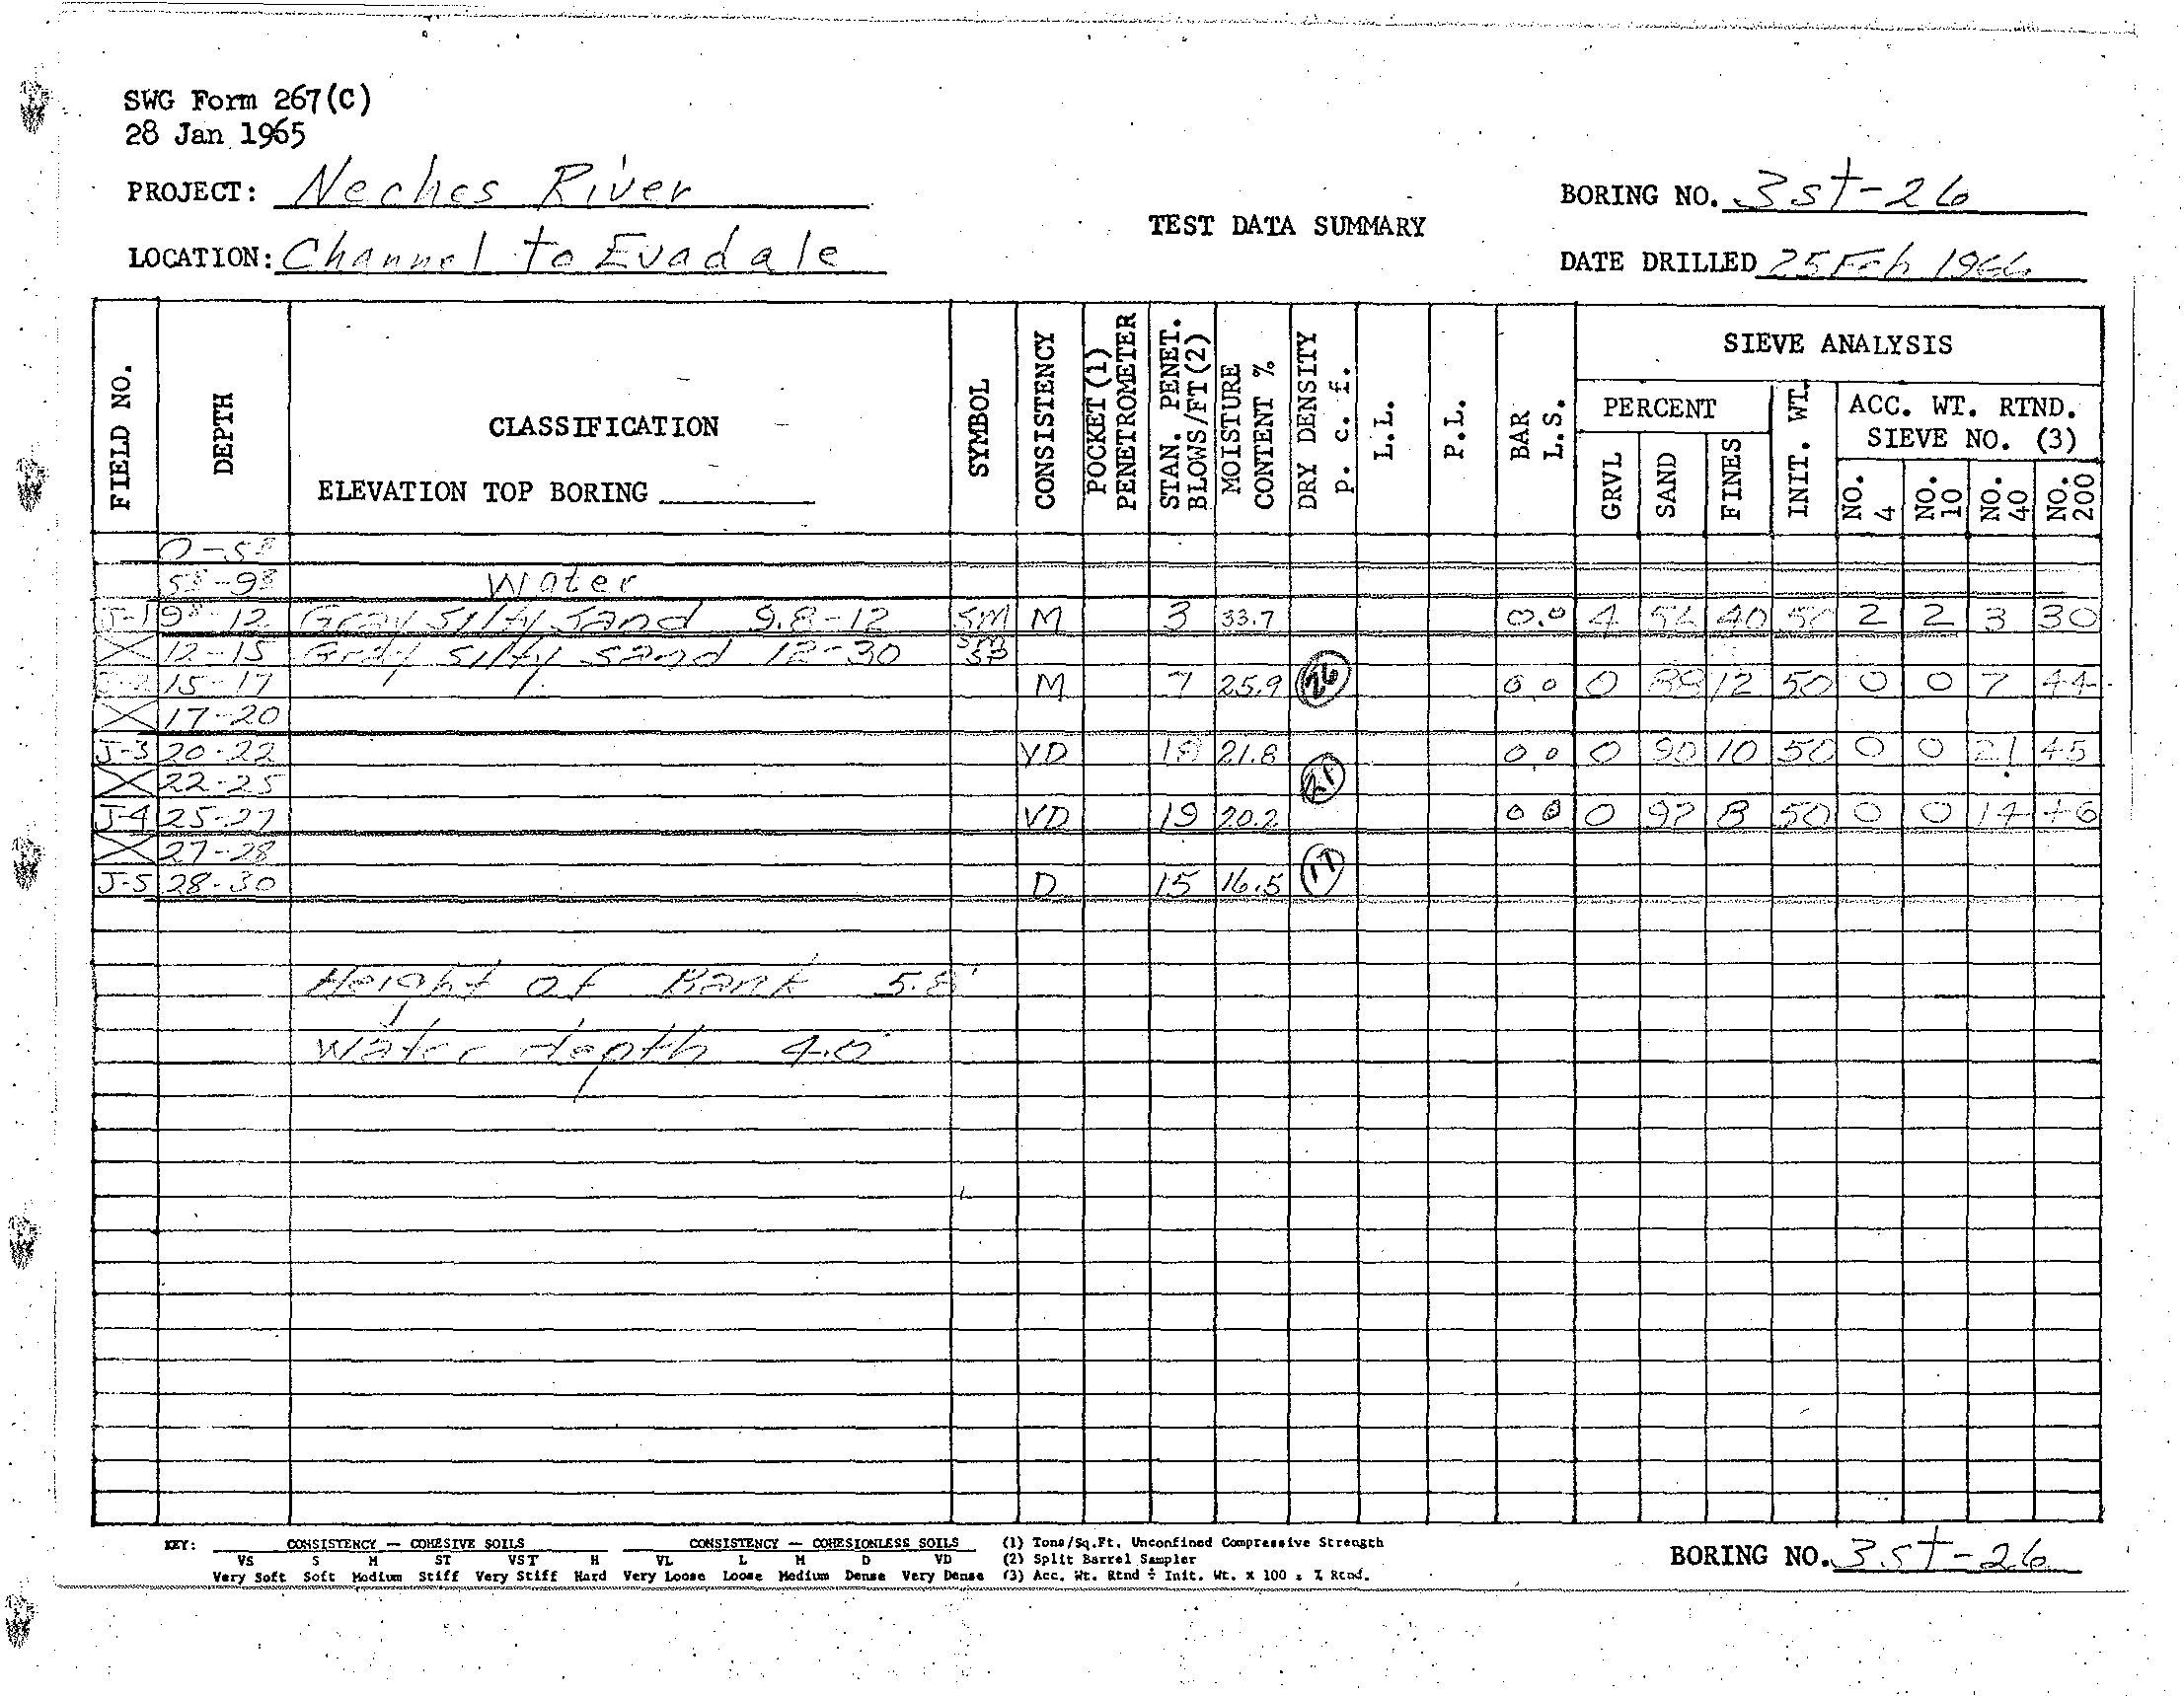 SWG Form 267(C)
28 Jan 1965
PROJECT: Neches River
BORING NO. 3ST-26
TEST DATA SUMMARY
LOCATION: Channel to Evadale
DATE DRILLED 25 Feb 1966
FIELD NO. DEPTH CLASSIFICATION SYMBOL CONSISTENCY POCKET (1) PENETROMETER STAN. PENET. BLOWS/FT(2) MOISTURE CONTENT % DRY DENSITY p. c. f. L.L. P.L. BAR L.S. SIEVE ANALYSIS
ELEVATION TOP BORING
PERCENT INIT. WT. ACC. WT. RTND. SIEVE NO. (3)
GRVL SAND FINES NO. 4 NO. 10 NO. 40 NO. 200
0-5.8
5.8-9.8 Water
J-1 9.8-12 Gray silty sand 9.8-12 SM M 3 33.7 0.0 4 56 40 50 2 2 3 30
12-15 Gray silty sand 12-30 SM SP
J-2 15-17 M 7 25.9 26 0.0 0 88 12 50 0 0 7 44
17-20
J-3 20-22 VD 18 21.8 0.0 0 90 10 50 0 0 21 45
22-25 21
J-4 25-27 VD 19 20.2 0 0 0 92 8 50 0 0 14 46
27-28
J-5 28-30 D 15 16.5 17
Height of Bank 5.8'
Water depth 4.0
KEY: CONSISTENCY — COHESIVE SOILS CONSISTENCY — COHESIONLESS SOILS (1) Tons/Sq.Ft. Unconfined Compressive Strength
VS S M ST VST H VL L M D VD (2) Split Barrel Sampler
Very Soft Soft Medium Stiff Very Stiff Hard Very Loose Loose Medium Dense Very Dense (3) Acc. Wt. Rtnd ÷ Init. Wt. x 100 = % Rtnd.
BORING NO. 3ST-26